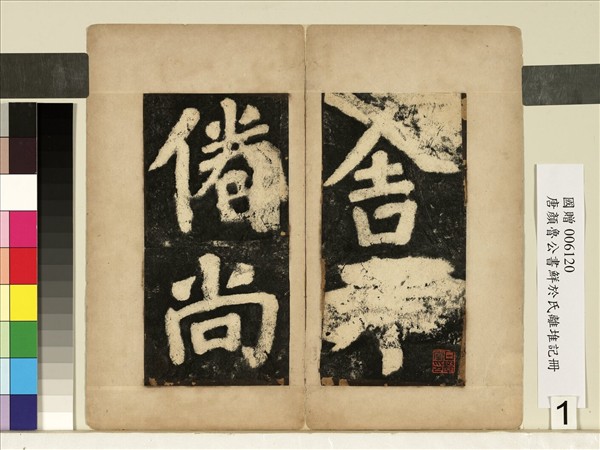 舍不
倦尚
國贈 006120
唐顏魯公書鮮於氏離堆記冊
1